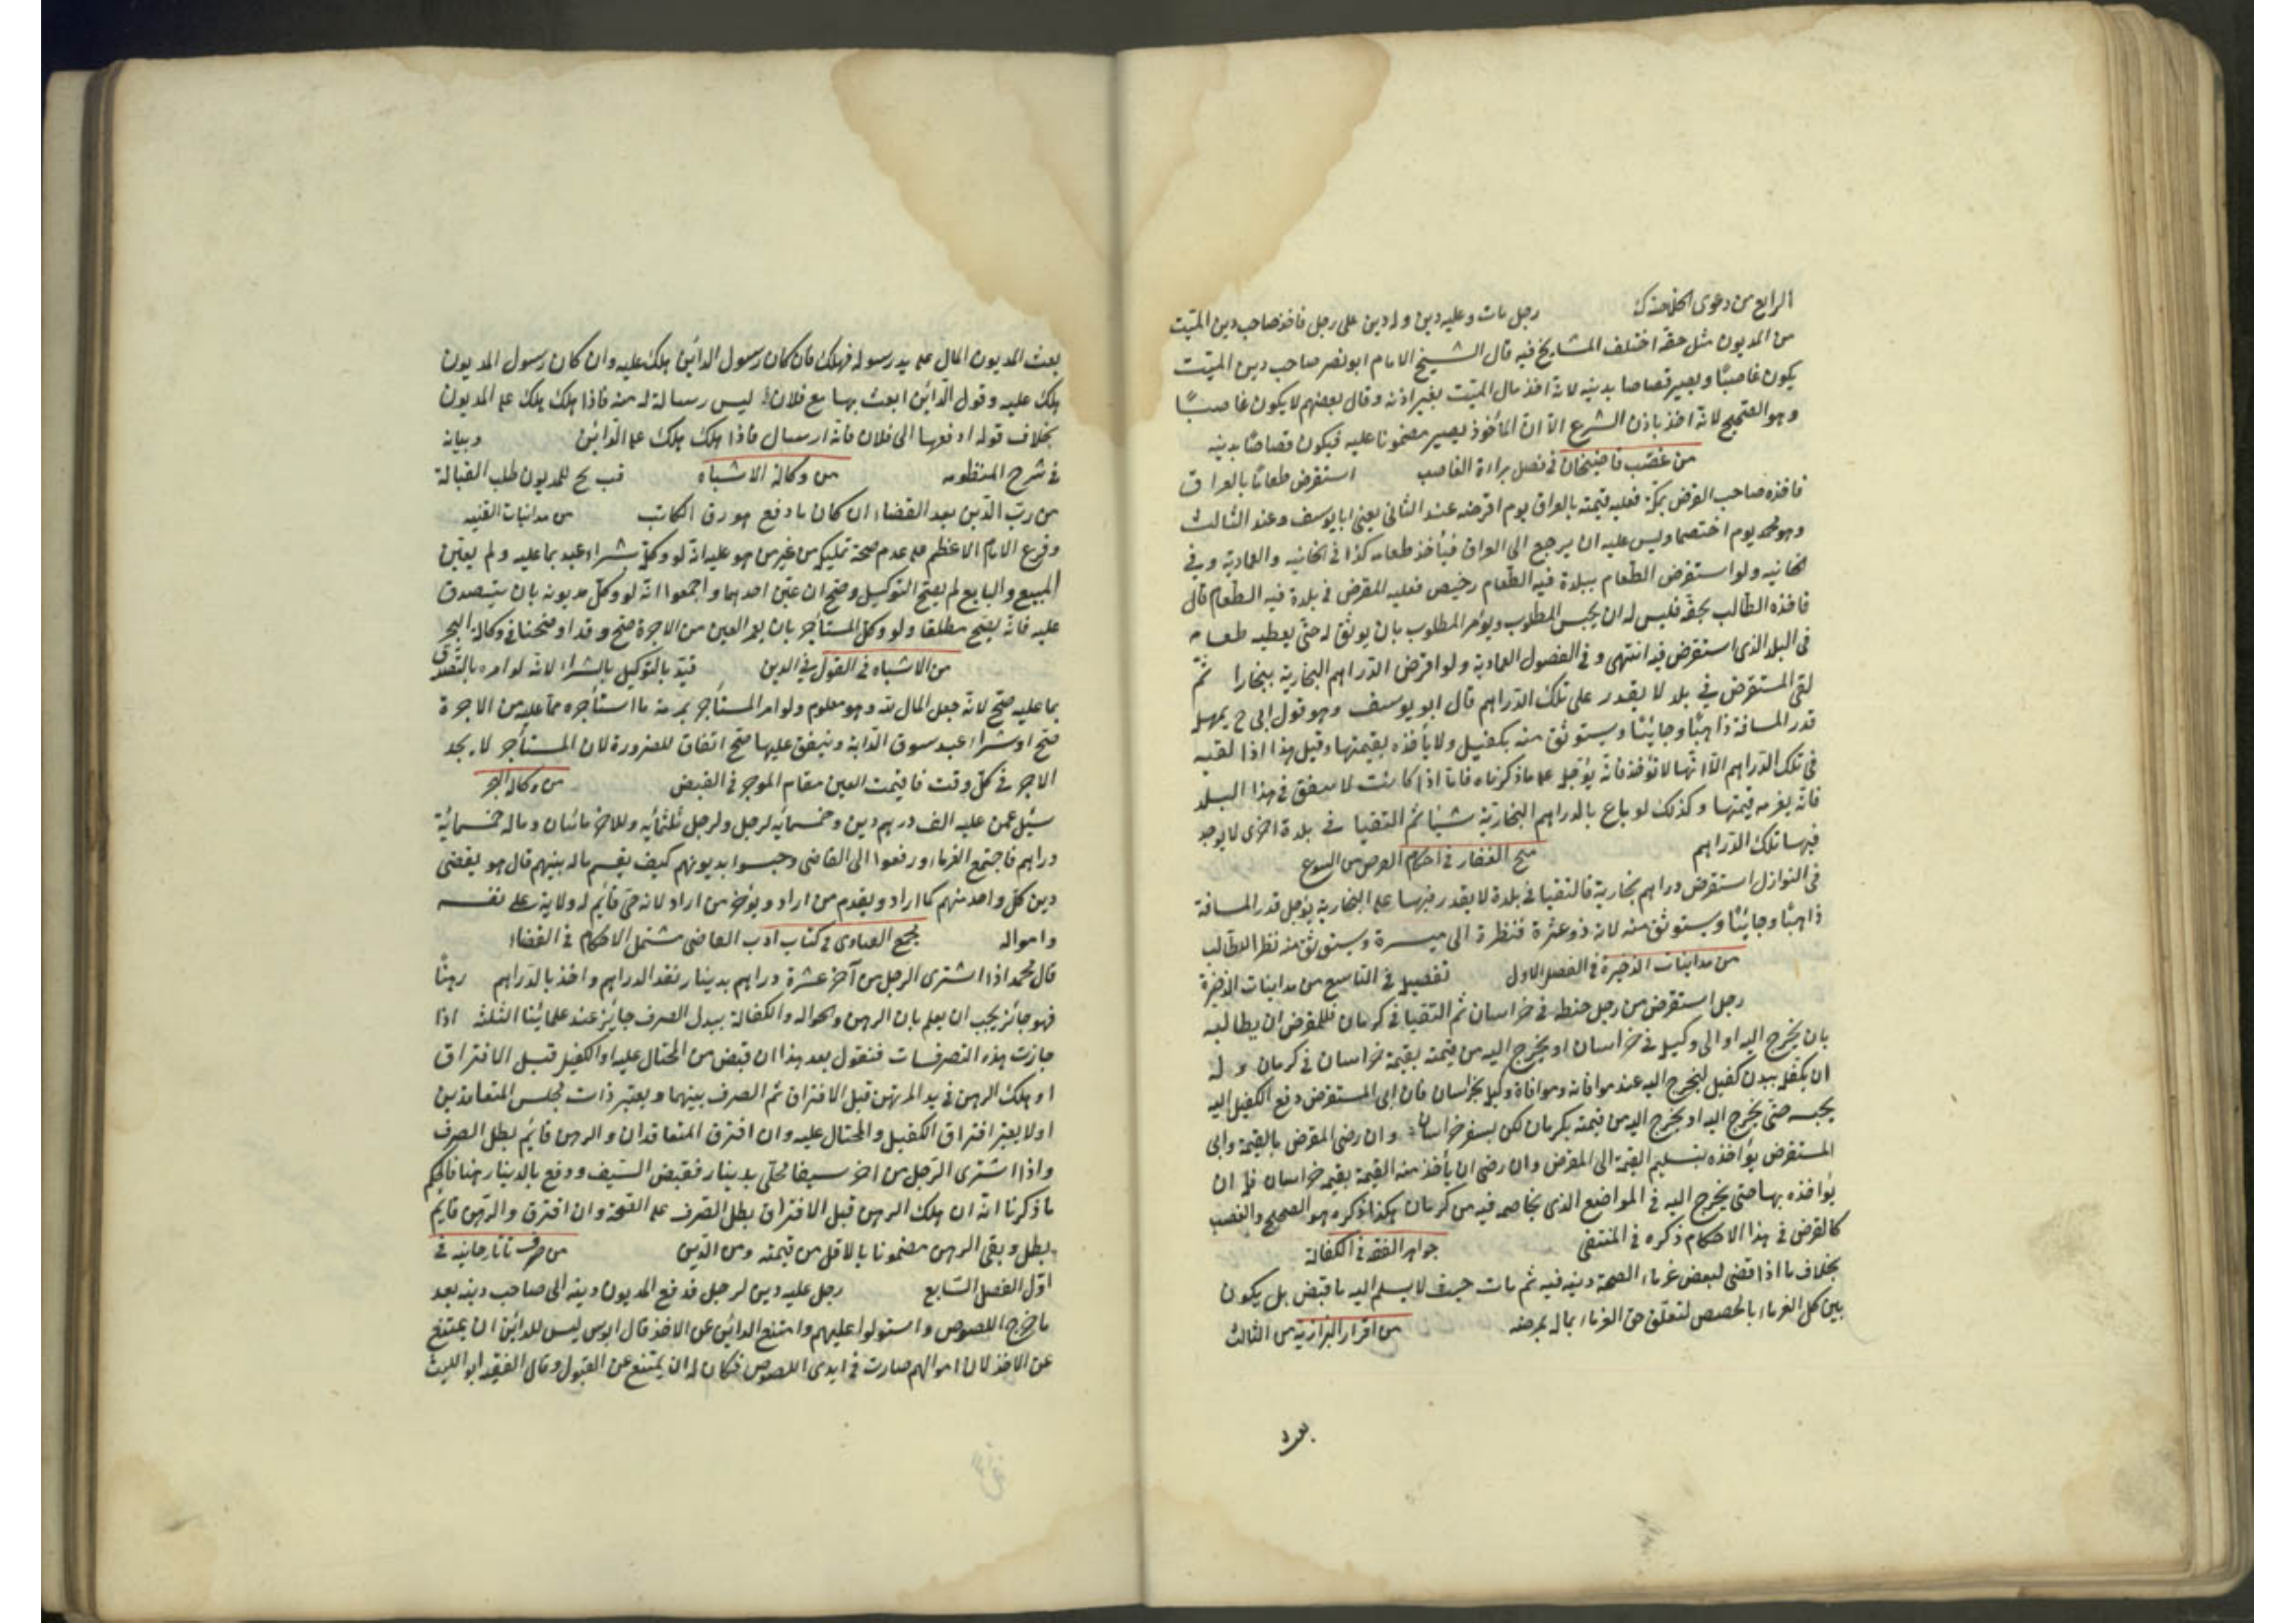 الرابع من دعوى الخلاصة رجل مات وعليه دين وله دين على رجل فاخذ صاحب دين الميّت
من المديون مثل حقه اختلف المشايخ فيه قال الشيخ الامام ابو نصر صاحب دين الميّت
يكون غاصبًا ويصير قصاصا بدينه لانه اخذ مال الميّت بغير اذنه وقال بعضهم لا يكون غاصبًا
وهو الصّحيح لانّه اخذ باذن الشرع الّا انّ المأخوذ يصير مضمونا عليه فيكون قصاصًا بدينه
من غصب قاضيخان فى فصل براءة الغاصب استقرض طعامًا بالعراق
فاخذه صاحب القرض بمكّة فعليه قيمته بالعراق يوم اقرضه عند الثانى يعنى ابا يوسف وعند الثالث
وهو محمد يوم اختصما وليس عليه ان يرجع الى العراق فيأخذ طعامه كذا فى الخانيه والعمادية وفى
الخانيه ولو استقرض الطعام ببلدة فيه الطّعام رخيص فلقيه المقرض فى بلدة فيه الطعام غال
فاخذه الطّالب بحقّه فليس له ان يحبس المطلوب ويؤمر المطلوب بان يوثق له حتّى يعطيه طعامه
فى البلد الذى استقرض فيه انتهى وفى الفصول العمادية ولو اقرض الدّراهم البخارية ببخارا ثمّ
لقى المستقرض فى بلد لا يقدر على تلك الدّراهم قال ابو يوسف وهو قول ابى ح يمهل
قدر المسافة ذاهبًا وجائيًا ويستوثق منه بكفيل ولا يأخذه بقيمتها وقيل هذا اذا لقيه
فى تلك الدّراهم الّا انّها لا تؤخذ فانّه يؤجل على ما ذكرناه فامّا اذا كانت لا تنفق فى هذا البلد
فانّه يغرمه قيمتها وكذلك لو باع بالدراهم البخارية شيئا ثمّ التقيا فى بلدة اخرى لا يوجد
فيها تلك الدّراهم منح الغفار فى احكام القرض من البيوع
فى النوازل استقرض دراهم بخارية فالتقيا فى بلدة لا يقدر فيها على البخارية يؤجل قدر المسافة
ذاهبًا وجائيًا ويستوثق منه لانه ذو عشرة فنظرة الى ميسرة ويستوثق منه نظرا للطّالب
من مداينات الذخيرة فى الفصل الاول تفصيل فى التاسع من مداينات الذخيرة
رجل استقرض من رجل حنطه فى خراسان ثمّ التقيا فى كرمان فللمقرض ان يطالبه
بان يخرج اليه او الى وكيل فى خراسان او يخرج اليه من قيمته بقيمة خراسان فى كرمان وله
ان يكفل ببدن كفيل ليخرج اليه عند موافاته وموافاة وكيل بخراسان فان ابى المستقرض دفع الكفيل اليه
يحبسه حتّى يخرج اليه او يخرج اليه من قيمته بكرمان لكن بسعر خراسان وان رضى المقرض بالقيمة وابى
المستقرض يؤاخذه بتسليم القيمة الى المقرض وان رضى ان يأخذ منه القيمة بقيمة خراسان فله ان
يؤاخذه بها حتى يخرج اليه فى المواضع الذى يخاصمه فيه من كرمان هكذا ذكره هو الصحيح والغصب
كالقرض فى هذا الاحكام ذكره فى المنتقى جواهر الفقه فى الكفالة
بخلاف ما اذا قضى لبعض غرماء الصحة دينه فيه ثم مات حيث لا يسلم اليه ما قبض بل يكون
بين كل الغرماء بالحصص لتعلّق حق الغرماء بماله بمرضه من اقرار البزازية من الثالث
بعث
بعث المديون المال على يد رسوله فهلك فان كان رسول الدائن هلك عليه وان كان رسول المديون
هلك عليه وقول الدّائن ابعث بها مع فلان ليس رسالة له منه فاذا هلك هلك على المديون
بخلاف قوله ادفعها الى فلان فانّه ارسال فاذا هلك هلك على الدّائن وبيانه
فى شرح المنظومه من وكالة الاشباه قب يح للمديون طلب القبالة
من ربّ الدّين بعد القضاء ان كان ما دفع هو رق الكاتب من مداينات القنيه
وفرع الامام الاعظم على عدم صحة تمليكه من غير من هو عليه انّه لو وكّله بشراء عبد بما عليه ولم يعيّن
المبيع والبايع لم يصحّ التوكيل وصحّ ان عيّن احدهما واجمعوا انّه لو وكّل مديونه بان يتصدق
عليه فانّه يصحّ مطلقا ولو وكّل المستأجر بان يعمر العين من الاجرة صحّ وقد اوضحناه فى وكالة البحر
من الاشباه فى القول فى الدين قيّد بالتوكيل بالشراء لانّه لو امره بالتّصدّق
بما عليه صحّ لانّه جعل المال لله وهو معلوم ولو امر المستأجر بمرمة ما استأجره مما عليه من الاجرة
صحّ او شراء عبد يسوق الدّابة وينفق عليها صحّ اتفاقا للضرورة لان المستأجر لا يجد
الاجر فى كلّ وقت فاقيمت العين مقام الموجر فى القبض من وكالة البحر
سئل عمن عليه الف درهم دين وخمسمائة لرجل ولرجل ثلثمائه وللاخر مائتان وماله خمسمائة
دراهم فاجتمع الغرماء ورفعوا الى القاضى وحبسوا مديونهم كيف يقسم ماله بينهم قال هو يقضى
دين كلّ واحد منهم كما اراد ويقدم من اراد ويؤخر من اراد لانه حىّ قائم له ولاية على نفسه
وامواله مجمع الفتاوى فى كتاب ادب القاضى مشتمل الاحكام فى القضاء
قال محمد اذا اشترى الرجل من آخر عشرة دراهم بدينار نقد الدراهم واخذ بالدراهم رهنًا
فهو جائز يجب ان يعلم بان الرهن والحواله والكفالة ببدل الصرف جائز عند علمائنا الثلثه اذا
جازت هذه التصرفات فنقول بعد هذا ان قبض من المحتال عليه او الكفيل قبل الافتراق
او هلك الرهن فى يد المرتهن قبل الافتراق تمّ الصرف بينهما ويعتبر ذات مجلس المتعاقدين
اولا يعتبر افتراق الكفيل والمحتال عليه وان افترق المتعاقدان والرهن قائم بطل الصرف
واذا اشترى الرّجل من اخر سيفا محلّى بدينار فقبض السّيف ودفع بالدينار رهنا فالحكم
ما ذكرنا انّه ان هلك الرهن قبل الافتراق بطل الصّرف على الصّحّة وان افترق والرّهن قايم
بطل وبقى الرهن مضمونا بالاقل من قيمته ومن الدّين من صرف تاتارخانيه فى
اوّل الفصل السّابع رجل عليه دين لرجل فدفع المديون دينه الى صاحب دينه بعد
ما خرج اللصوص واستولوا عليهم وامتنع الدائن عن الاخذ قال ليس للدائن ان يمتنع
عن الاخذ لان اموالهم صارت فى ايدى اللصوص فكان له ان يمتنع عن القبول وقال الفقيه ابو الليث